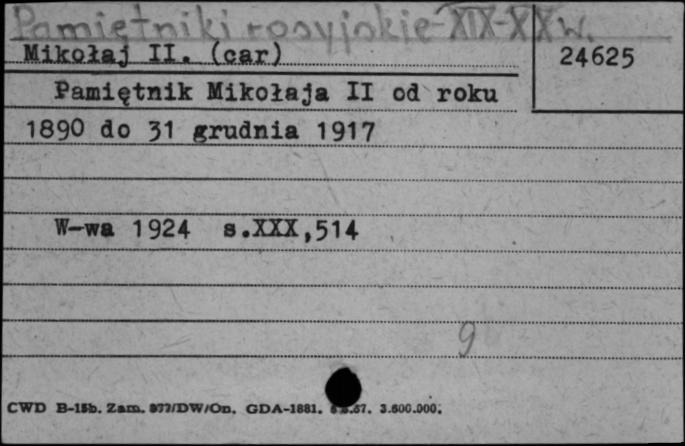 Pamiętniki rosyjskie XIX-XX w.
Mikołaj II. (car)
24625
Pamiętnik Mikołaja II od roku
1890 do 31 grudnia 1917
W-wa 1924 s.XXX,514
9
CWD B-15b. Zam. 977/DW/On. GDA-1881. 67. 3.600.000.